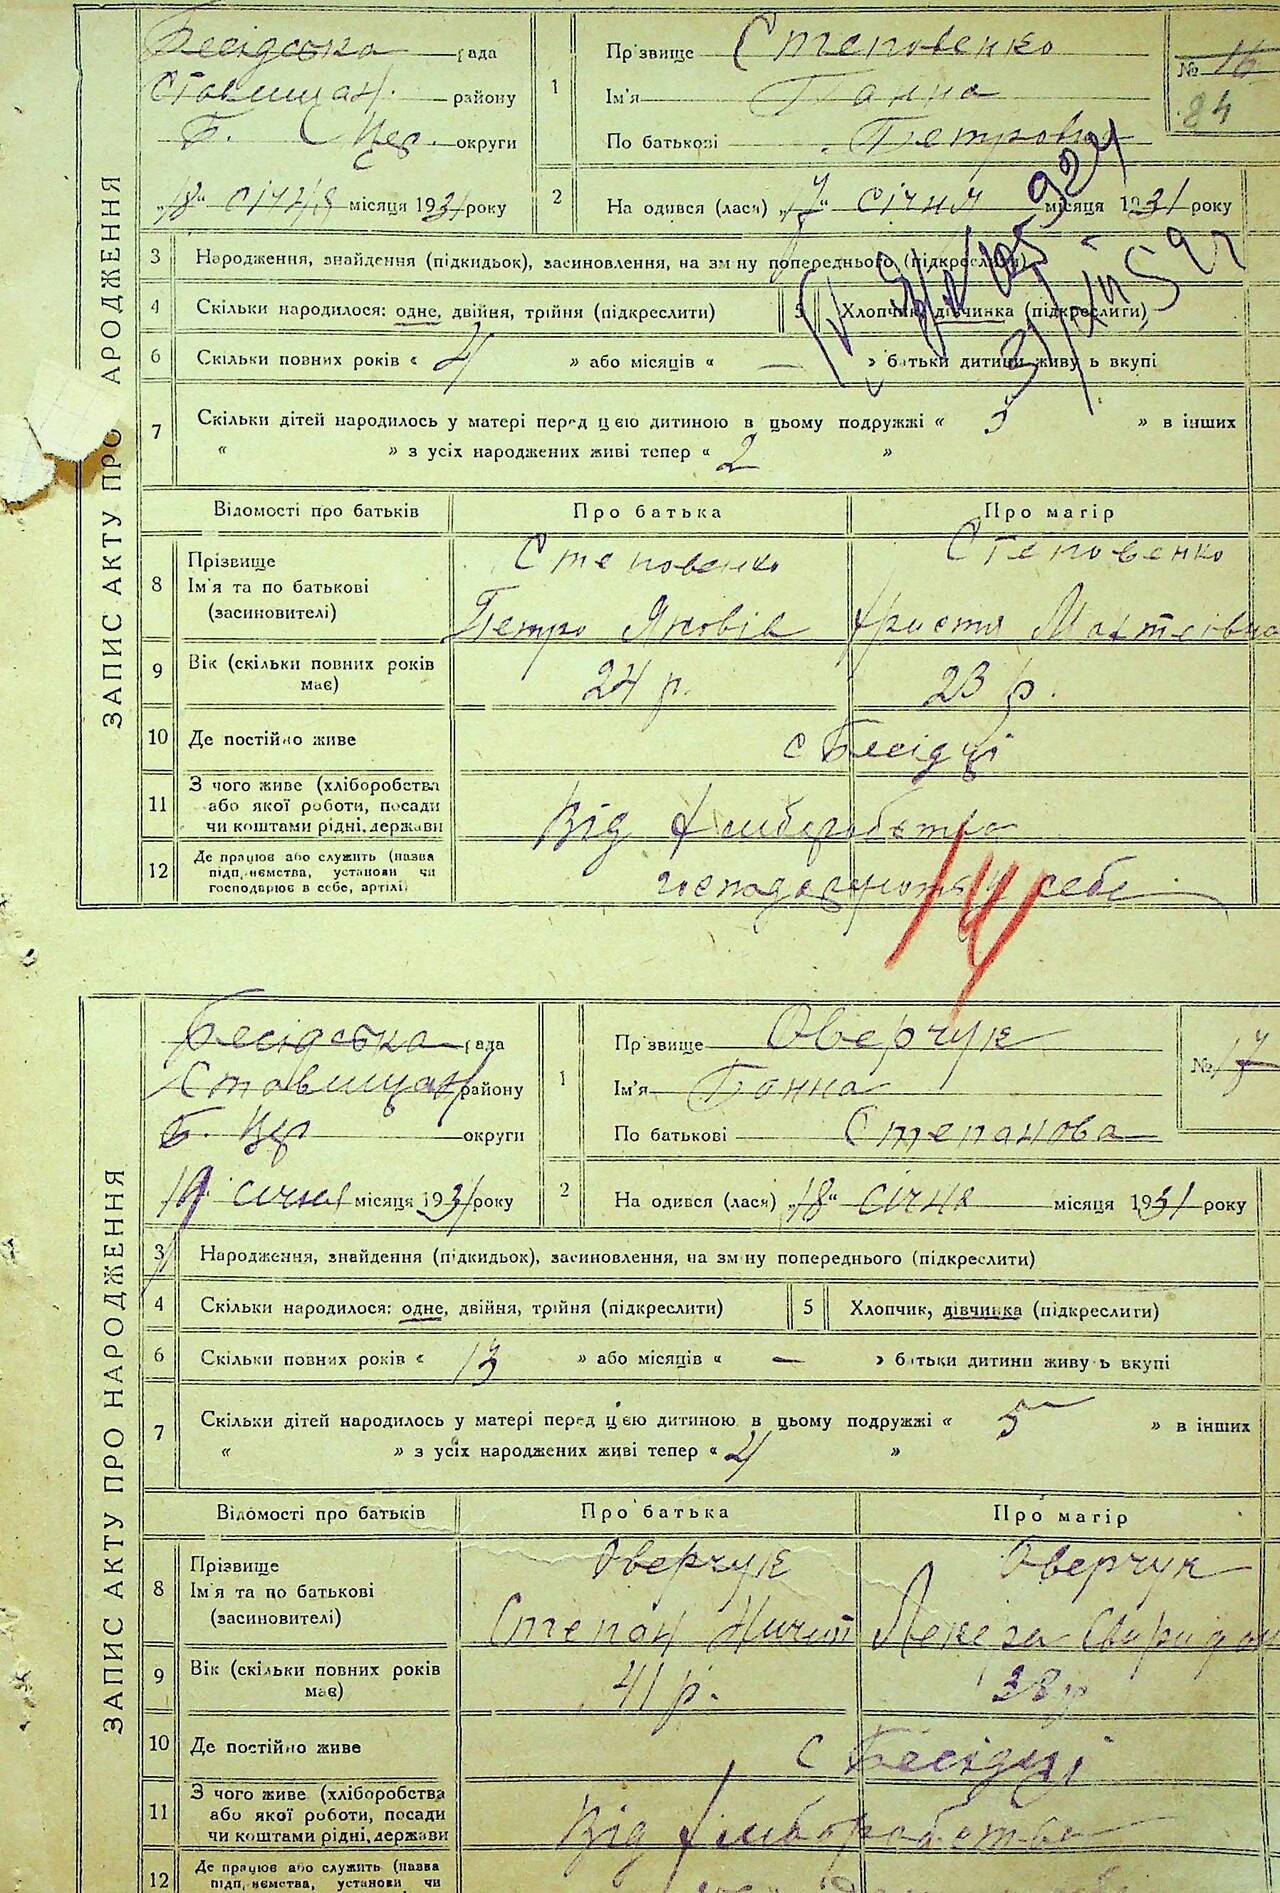 ЗАПИС АКТУ ПРО АРОДЖЕННЯ
Бесідська рада
Ставищан. району
Б. Цер. округи
„18“ січня місяця 1931 року
1 Прізвище Степовенко
Ім'я Ганна
По батькові Петровна
№ 16
84
2 На одився (лася) „17“ січня місяця 1931 року
3 Народження, знайдення (підкидьок), засиновлення, на зм ну попереднього (підкреслити)
4 Скільки народилося: одне, двійня, трійня (підкреслити)
5 Хлопчик, дівчинка (підкреслити)
6 Скільки повних років « 4 » або місяців « — » батьки дитини живу ь вкупі
7 Скільки дітей народилось у матері перед цією дитиною в цьому подружжі « 3 » в інших
« » з усіх народжених живі тепер « 2 »
Відомості про батьків Про батька Про матір
8 Прізвище Степовенко Степовенко
Ім'я та по батькові
(засиновителі) Петро Яковів Христя Мактеівна
9 Вік (скільки повних років
має) 24 р. 23 р.
10 Де постійно живе с Бесідці
11 З чого живе (хліборобства
або якої роботи, посади
чи коштами рідні, держави Від хліборобства
12 Де працює або служить (назва
підп,иємства, установи чи
господарює в себе, артілі) господарують у себе
14
ЗАПИС АКТУ ПРО НАРОДЖЕННЯ
Бесідська рада
Ставищан району
Б. Цер округи
19 січня місяця 1931 року
1 Прізвище Оверчук
Ім'я Ганна
По батькові Степанова
№ 17
2 На одився (лася) „18“ січня місяця 1931 року
3 Народження, знайдення (підкидьок), засиновлення, на зм ну попереднього (підкреслити)
4 Скільки народилося: одне, двійня, трійня (підкреслити)
5 Хлопчик, дівчинка (підкреслити)
6 Скільки повних років « 13 » або місяців « — » батьки дитини живу ь вкупі
7 Скільки дітей народилось у матері перед цією дитиною в цьому подружжі « 5 » в інших
« » з усіх народжених живі тепер « 4 »
Відомості про батьків Про батька Про матір
8 Прізвище Оверчук Оверчук
Ім'я та по батькові
(засиновителі) Степан Ничип Лекера Свиридон
9 Вік (скільки повних років
має) 41 р. 38 р
10 Де постійно живе с Бесідці
11 З чого живе (хліборобства
або якої роботи, посади
чи коштами рідні, держави Від хліборобства
12 Де працює або служить (назва
підп,иємства, установи чи